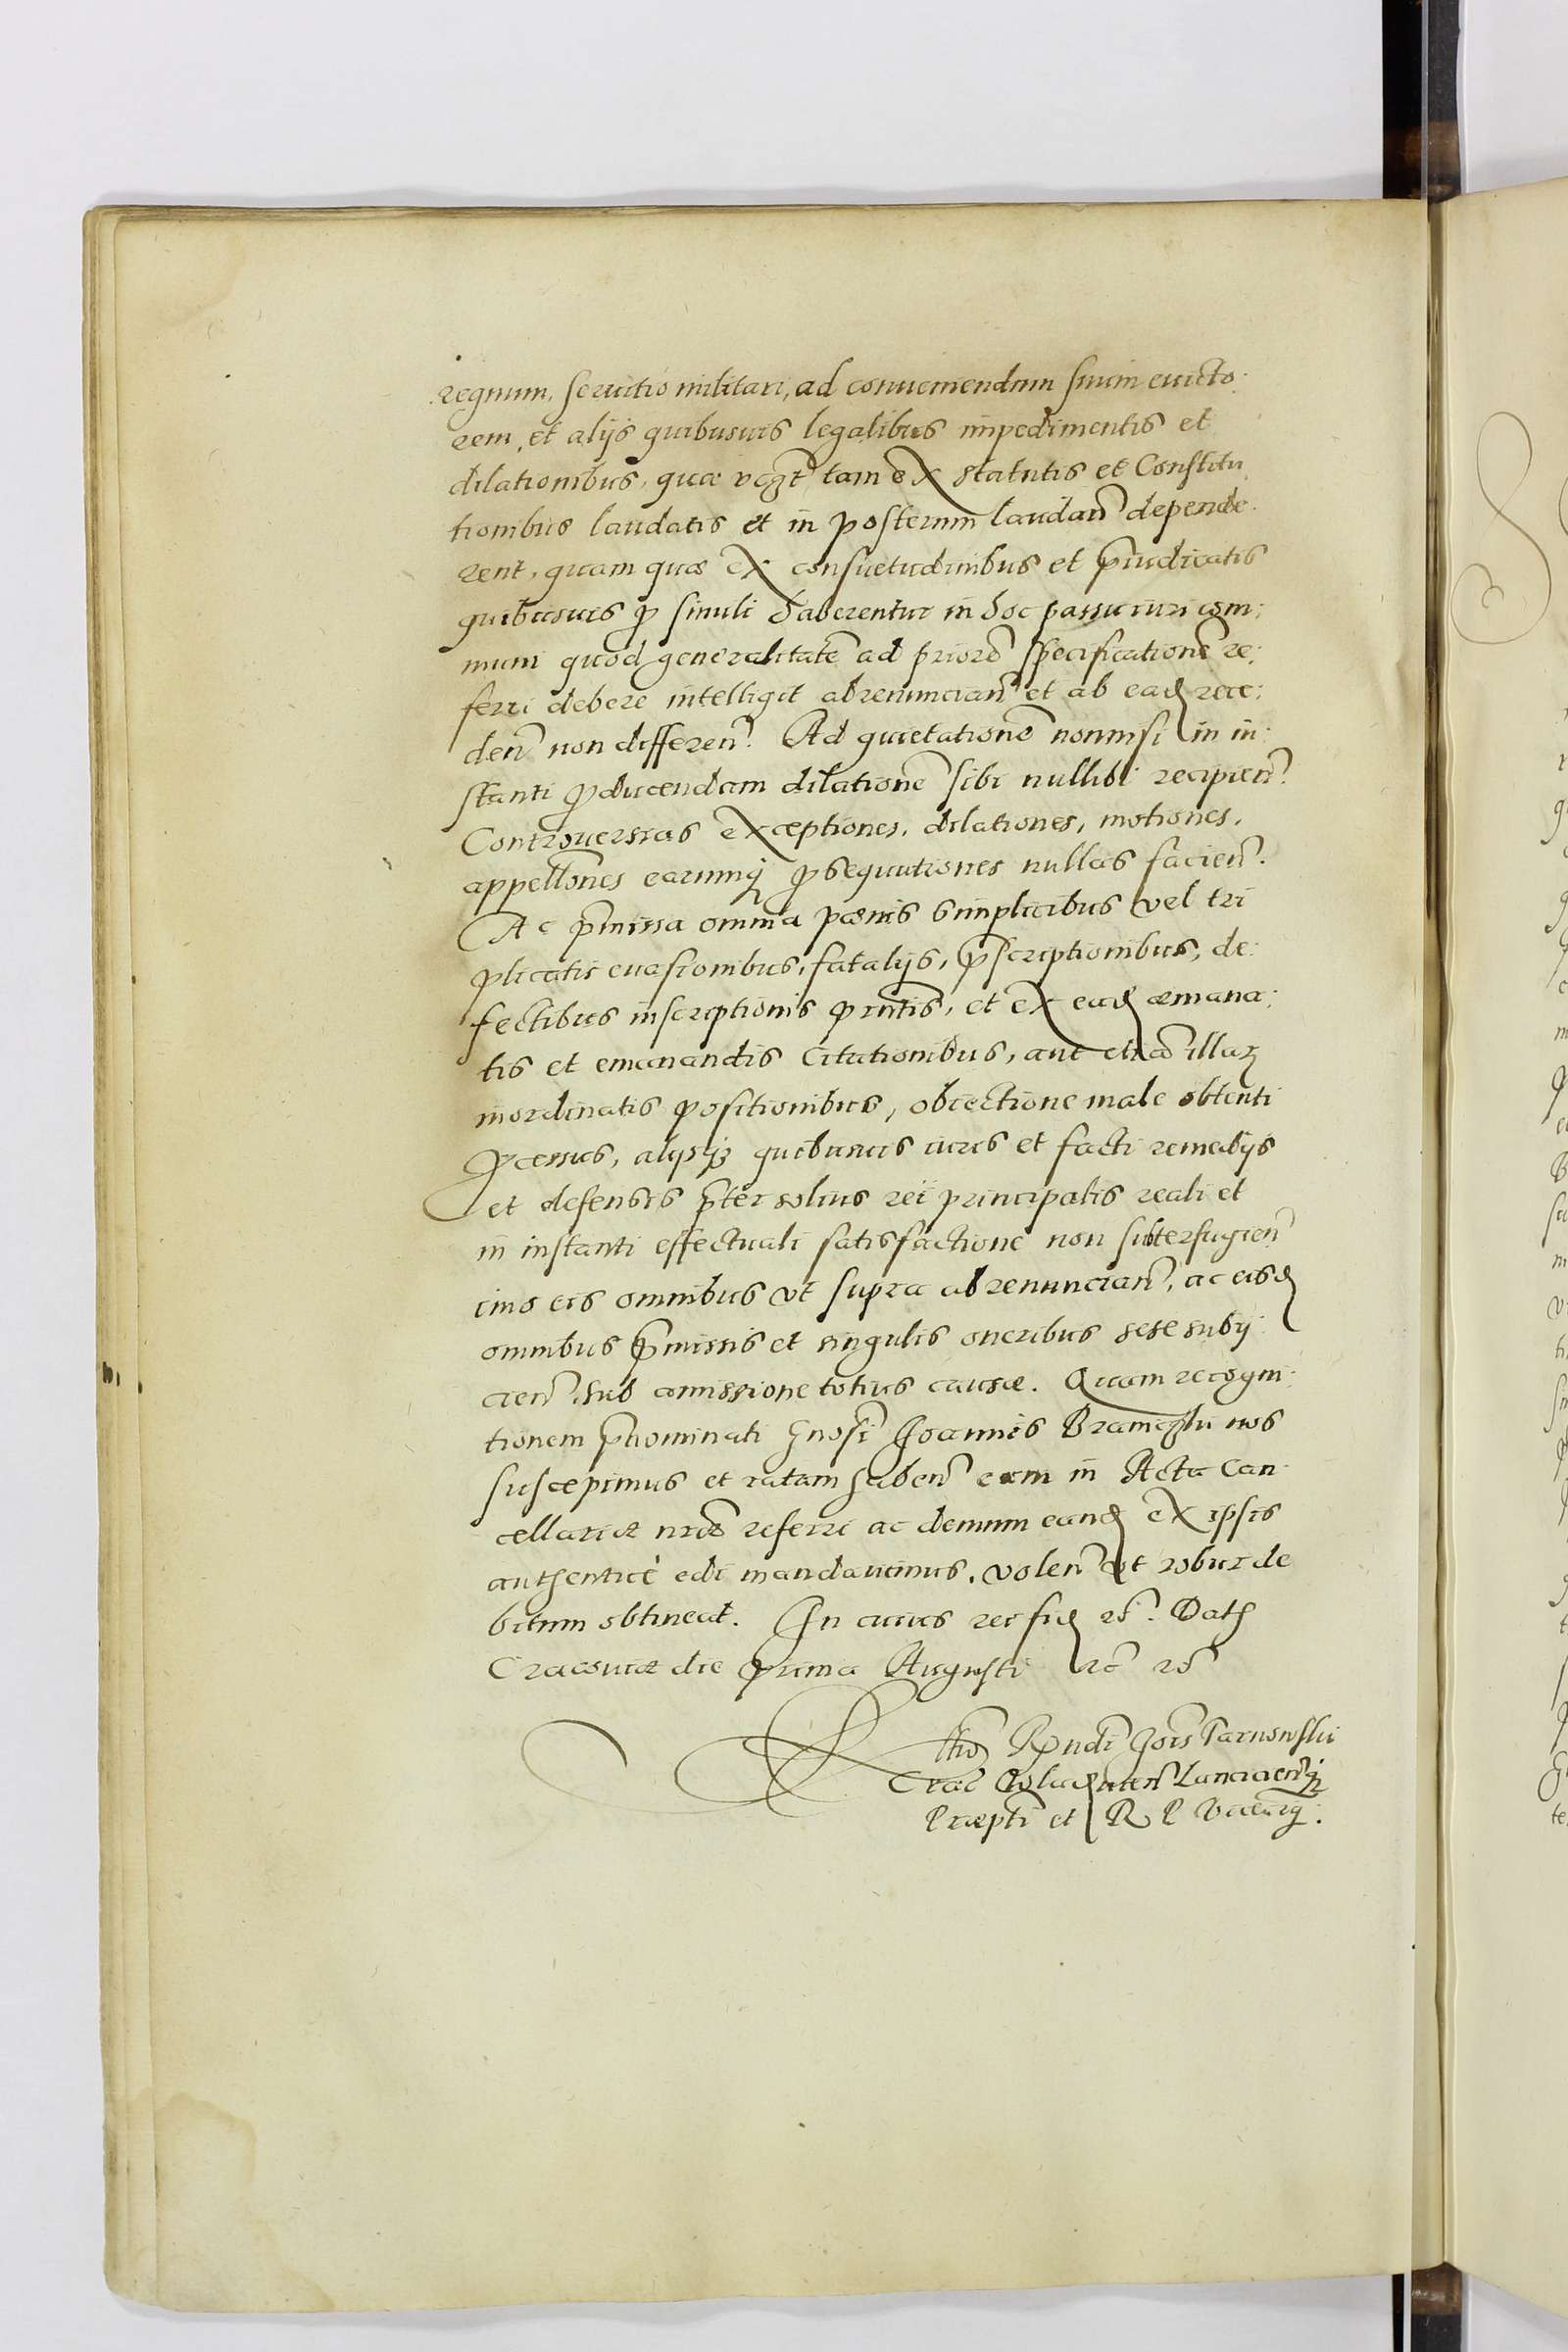 regnum, seruitio militari, ad conueniendum suum euicto:
rem, et alijs quibusuis legalibus impedimentis et
dilationibus, quæ tam ex statutis et Constitu
tionibus laudatis et in posterum laudan̄ depende.
rent, quam quæ ex consuetudinibus et p̄iudicatis
quibusuis ꝓ simili haberentur in hoc passu iuri com:
muni quod generalitatē ad priorē specificationē re:
ferri debere intelligit abrenuncian̄ et ab ead rece:
den̄ non differen̄. Ad quietationē nonnisi in in:
stanti ꝓducendam dilationē sibi nullibi recipien̄.
Controuersias exceptiones, dilationes, motiones,
appellōnes earumq ꝓsequutiones nullas facien̄.
Ac p̄missa omnia pœnis simplicibus vel tri
plicatis euasionibus, fatalijs, p̄scriptionibus, de:
fectibus inscriptionis pr̄ntis, et ex ead emana:
tis et emanandis Citationibus, aut etiā illaꝝ
inordinatis positionibus, obiectione male obtenti
ꝓcessus, alijsqꝫ quibusuis iuris et facti remedijs
et defensis p̄ter solius rei principalis reali et
in instanti effectuali satisfactione non subterfugien̄
imo eis omnibus vt supra abrenuncian̄, ac eisd
omnibus p̄missis et singulis oneribus sese subij
cien̄, sub amissione totius causæ. Quam recogni:
tionem p̄nominati Gnosi Joannis nos
suscepimus et ratam haben̄ eam in Acta Can
cellariæ nr̄æ referri ac demum eand ex ipsis
authenticè edi mandauimus, volen̄ vt robur de
bitum obtineat. In cuius rei fid ꝛc̄. Dat
Cracouiæ die prima Augusti ꝛc̄ ꝛc̄
Rn̄di Jois Tarnowski
Crac̄ Lancicien̄q
Præpti et R P Vicecan̄.